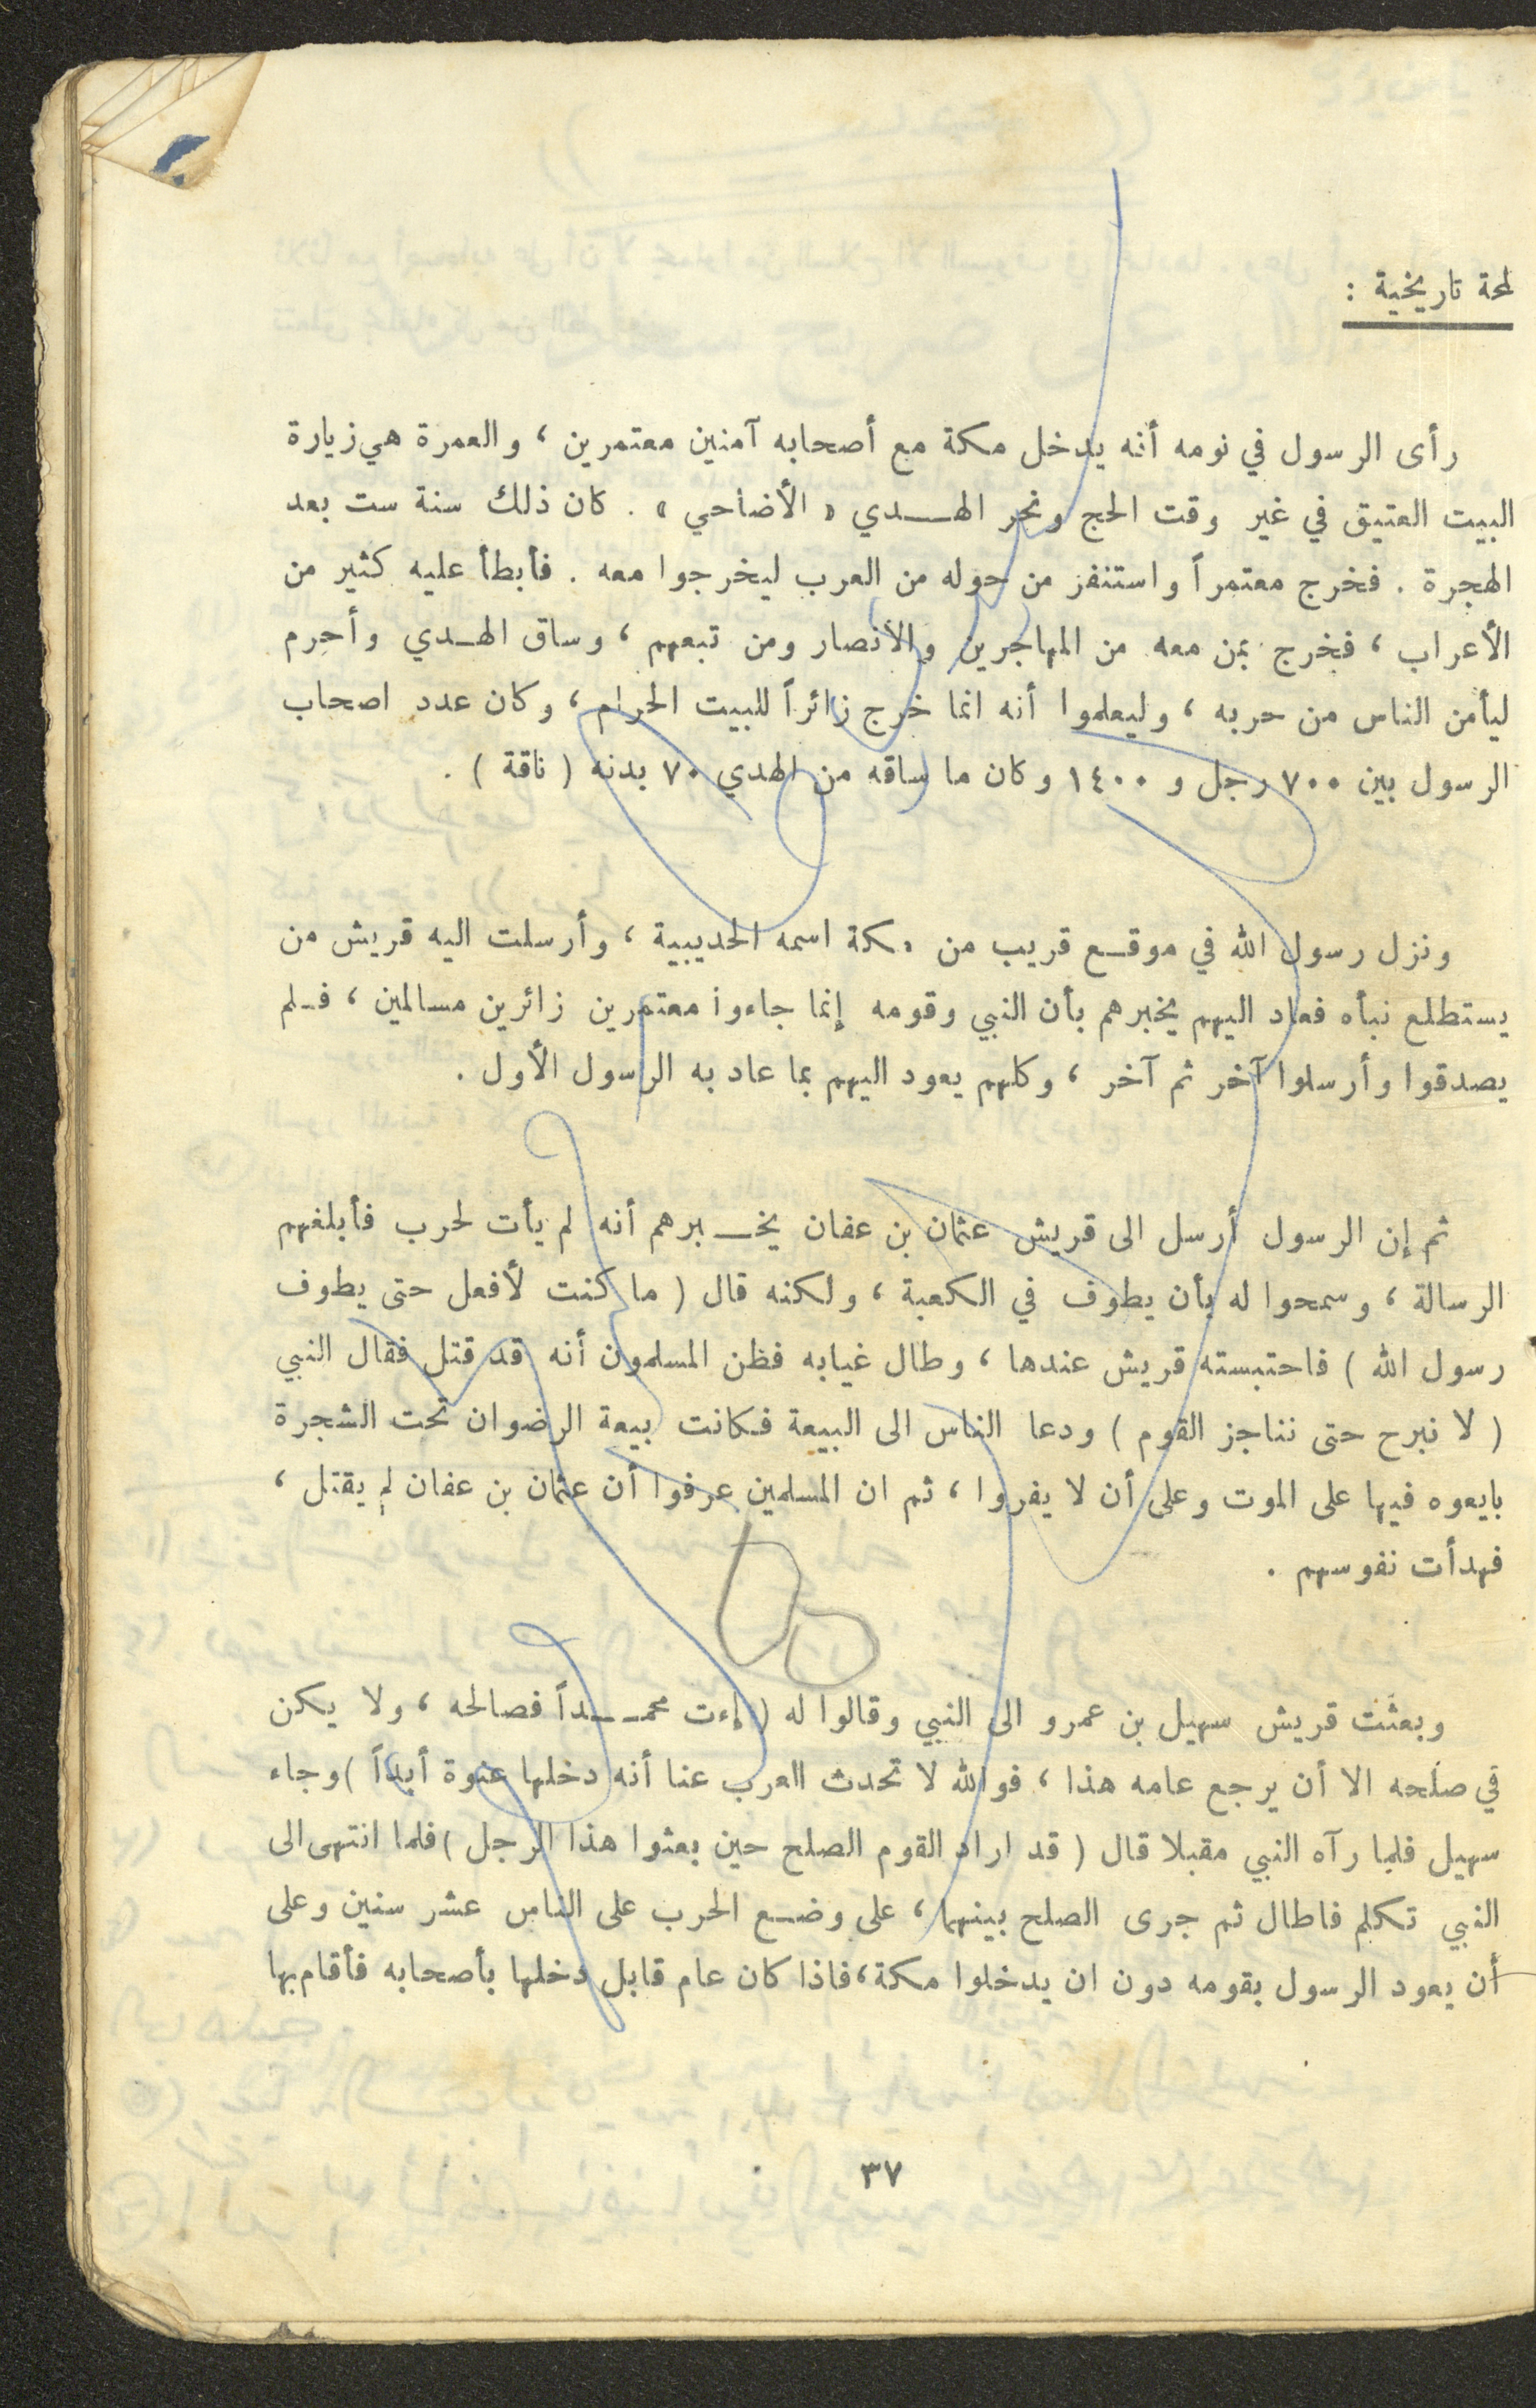 لمحة تاريخية :
رأى الرسول في نومه أنه يدخل مكة مع أصحابه آمنين معتمرين ، والعمرة هي زيارة
البيت العتيق في غير وقت الحج ونحر الهــدي « الأضاحي » . كان ذلك سنة ست بعد
الهجرة . فخرج معتمراً واستنفز من حوله من العرب ليخرجوا معه . فأبطأ عليه كثير من
الأعراب ، فخرج بمن معه من المهاجرين والأنصار ومن تبعهم ، وساق الهـدي وأحرم
ليأمن الناس من حربه ، وليعلموا أنه انما خرج زائراً للبيت الحرام ، وكان عدد اصحاب
الرسول بين ٧٠٠ رجل و ١٤٠٠ وكان ما ساقه من الهدي ٧٠ بدنه ( ناقة ) .
ونزل رسول الله في موقـع قريب من مكة اسمه الحديبية ، وأرسلت اليه قريش من
يستطلع نبأه فعاد اليهم يخبرهم بأن النبي وقومه إنما جاءوا معتمرين زائرين مسالمين ، فـلم
يصدقوا وأرسلوا آخر ثم آخر ، وكلهم يعود اليهم بما عاد به الرسول الأول .
ثم إن الرسول أرسل الى قريش عثمان بن عفان يخــبرهم أنه لم يأت لحرب فأبلغهم
الرسالة ، وسمحوا له بأن يطوف في الكعبة ، ولكنه قال ( ما كنت لأفعل حتى يطوف
رسول الله ) فاحتبسته قريش عندها ، وطال غيابه فظن المسلمون أنه قد قتل فقال النبي
( لا نبرح حتى نناجز القوم ) ودعا الناس الى البيعة فكانت بيعة الرضوان تحت الشجرة
بايعوه فيها على الموت وعلى أن لا يفروا ، ثم ان المسلمين عرفوا أن عثمان بن عفان لم يقتل ،
فهدأت نفوسهم .
وبعثت قريش سهيل بن عمرو الى النبي وقالوا له ( إءت محمــداً فصالحه ، ولا يكن
في صلحه الا أن يرجع عامه هذا ، فوالله لا تحدث العرب عنا أنه دخلها عنوة أبداً ) وجاء
سهيل فلما رآه النبي مقبلا قال ( قد اراد القوم الصلح حين بعثوا هذا الرجل ) فلما انتهى الى
النبي تكلم فاطال ثم جرى الصلح بينهما ، على وضـع الحرب على الناس عشر سنين وعلى
أن يعود الرسول بقومه دون ان يدخلوا مكة ، فاذا كان عام قابل دخلها بأصحابه فأقام بها
٣٧